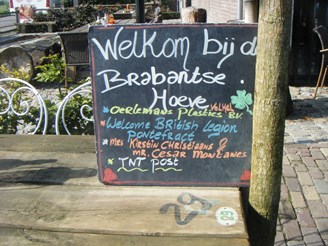 Welkom bij d
Brabantse
Hoeve
Volkel
Oerlemans Plastics BV.
Welcome British Legion
Pontefract
Mrs Kirstin Christiaans &
MR. Cesar Montanes
TNT post